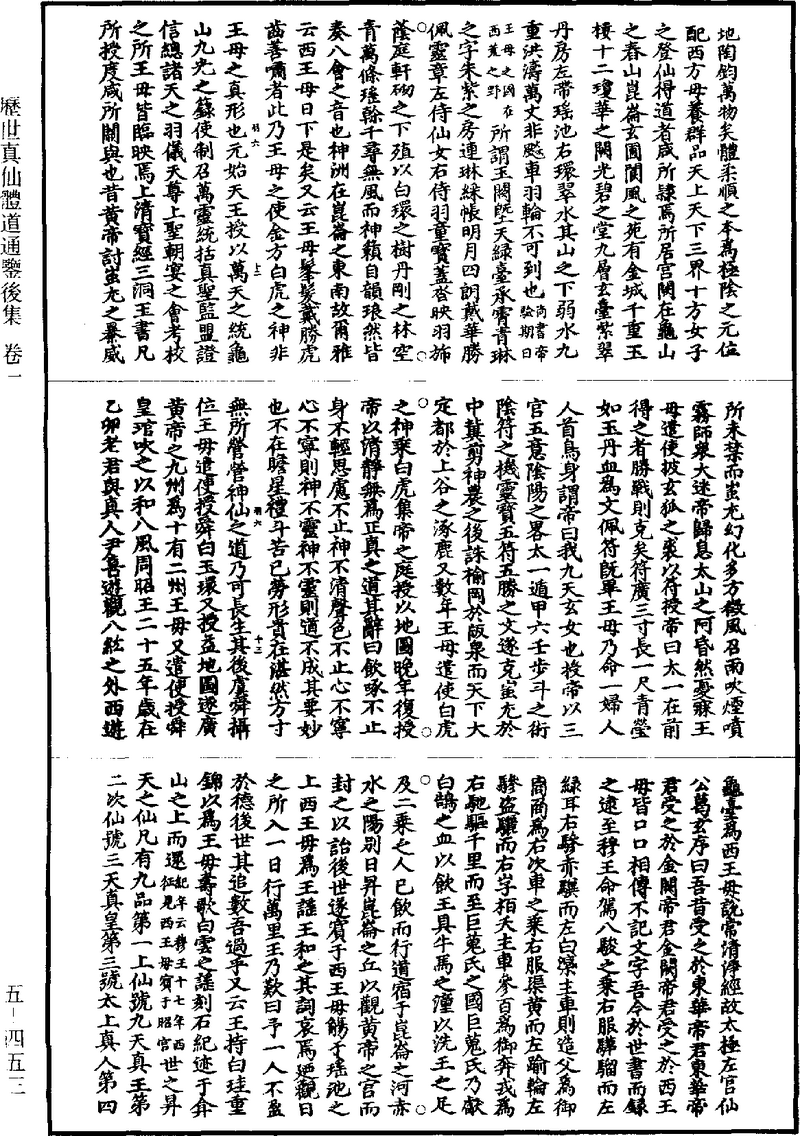 地陶鈞萬物矣體柔順之本為極陰之元位
配西方母養群品天上天下三界十方女子
之登仙得道者咸所隸焉所居宮闕在龜山
之舂山崑崙玄圃閬風之苑有金城千重玉
樓十二瓊華之闕光碧之堂九層玄臺紫翠
丹房左帶瑤池右環翠水其山之下弱水九
重洪濤萬丈非飇車羽輪不可到也尚書帝驗期曰
王母之國在西荒之野所謂玉闕塈天綠臺承霄青琳
之宇朱紫之房連琳綵帳明月四朗戴華勝
佩靈章左侍仙女右侍羽童寶蓋沓映羽旆
蔭庭軒砌之下殖以白環之樹丹剛之林空
青萬條瑤幹千尋無風而神籟自韻琅然皆
奏八會之音也神洲在崑崙之東南故爾雅
云西王母日下是矣又云王母髼髮戴勝虎
齒善嘯者此乃王母之使金方白虎之神非
王母之真形也元始天王授以萬天之統龜
山九光之籙使制召萬靈統括真聖監盟證
信總諸天之羽儀天尊上聖朝宴之會考校
之所王母皆臨映焉上清寶經三洞玉書凡
所授度咸所關與也昔黃帝討蚩尤之暴威
所未禁而蚩尤幻化多方徵風召雨吹煙噴
霧師眾大迷帝歸息太山之阿昏然憂寐王
母遣使披玄狐之裘以符授帝曰太一在前
得之者勝戰則克矣符廣三寸長一尺青瑩
如玉丹血為文佩符既畢王母乃命一婦人
人首鳥身謂帝曰我九天玄女也授帝以三
宮五意陰陽之畧太一遁甲六壬步斗之術
陰符之機靈寶五符五勝之文遂克蚩尤於
中冀剪神農之後誅榆岡於阪泉而天下大
定都於上谷之涿鹿又數年王母遣使白虎
之神乘白虎集帝之庭授以地圖晚年復授
帝以清靜無為正真之道其辭曰飲啄不止
身不輕思慮不止神不清聲色不止心不寧
心不寧則神不靈神不靈則道不成其要妙
也不在瞻星禮斗苦己勞形貴在湛然方寸
無所營營神仙之道乃可長生其後虞舜攝
位王母遣使授舜白玉環又授益地圖遂廣
黃帝之九州為十有二州王母又遣使授舜
皇琯吹之以和八風周昭王二十五年歲在
乙卯老君與真人尹喜遊觀八紘之外西遊
龜臺為西王母說常清淨經故太極左官仙
公葛玄序曰吾昔受之於東華帝君東華帝
君受之於金闕帝君金闕帝君受之於西王
母皆口口相傳不記文字吾今於世書而錄
之逮至穆王命駕八駿之乘右服驊騮而左
綠耳右驂赤驥而左白𣚴主車則造父為御
𧮫𧮫為右次車之乘右服渠黃而左踰輪左
驂盜驪而右山子栢夭主車參百為御奔戎為
右馳驅千里而至巨蒐氏之國巨蒐氏乃獻
白鵠之血以飲王具牛馬之湩以洗王之足
及二乘之人已飲而行遂宿于崑崙之河赤
水之陽別日昇崑崙之丘以觀黃帝之宮而
封之以詒後世遂賓于西王母觴于瑤池之
上西王母為王謠王和之其詞哀焉廼觀日
之所入一日行萬里王乃歎曰予一人不盈
於德後世其追數吾過乎又云王持白珪重
錦以為王母壽歌白雲之謠刻石紀迹于弇
山之上而還紀年云穆王十七年西征見西王母賓于昭宮世之昇
天之仙凡有九品第一上仙號九天真王第
二次仙號三天真皇第三號太上真人第四
歷世真仙體道通鑒後集　卷一
五-四五三